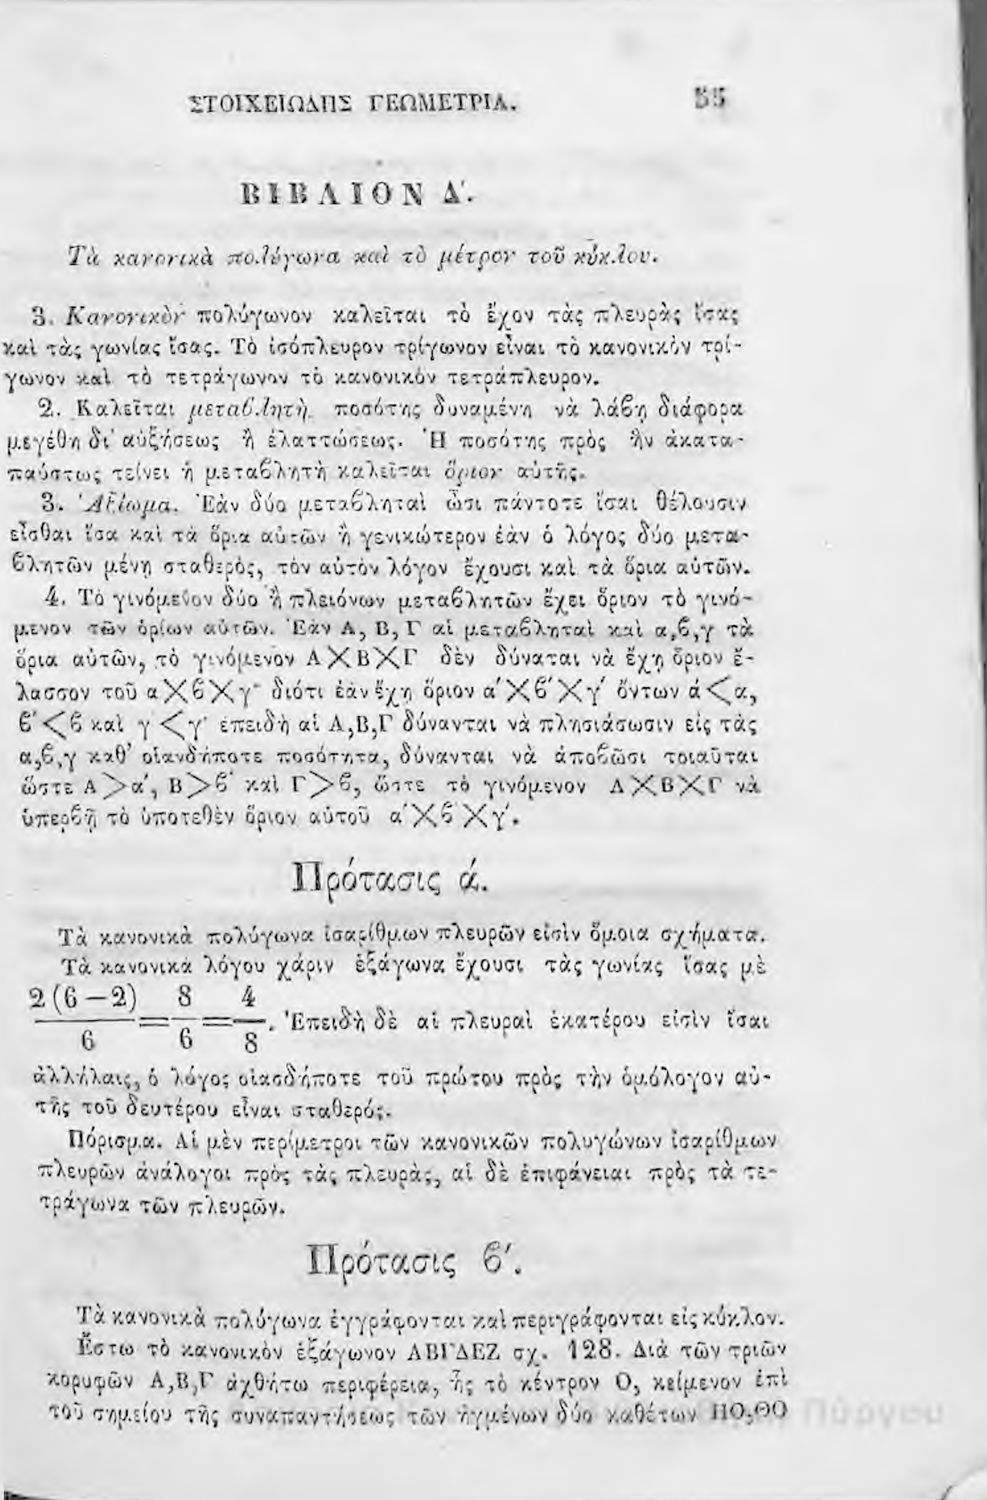 ΣΤΟΙΧΕΙΩΔΗΣ ΓΕΩΜΕΤΡΙΑ. 55
ΒΙΒΛΙΟΝ Δ'.
Τὰ κανονικὰ πολύγωνα καὶ τὸ μέτρον τοῦ κύκλου.
3. Κανονικὸν πολύγωνον καλεῖται τὸ ἔχον τὰς πλευρὰς ἴσας
καὶ τὰς γωνίας ἴσας. Τὸ ἰσόπλευρον τρίγωνον εἶναι τὸ κανονικὸν τρί-
γωνον καὶ τὸ τετράγωνον τὸ κανονικόν τετράπλευρον.
2. Καλεῖται μεταβλητὴ ποσότης δυναμένη νὰ λάβῃ διάφορα
μεγέθη δι' αὐξήσεως ἢ ἐλαττώσεως. Ἡ ποσότης πρὸς ἣν ἀκατα-
παύστως τείνει ἡ μεταβλητὴ καλεῖται ὅριον αὐτῆς.
3. Ἀξίωμα. Ἐὰν δύο μεταβληταὶ ὦσι πάντοτε ἴσαι θέλουσιν
εἶσθαι ἴσα καὶ τὰ ὅρια αὐτῶν ἢ γενικώτερον ἐὰν ὁ λόγος δύο μετα-
βλητῶν μένῃ σταθερὸς, τὸν αὐτὸν λόγον ἔχουσι καὶ τὰ ὅρια αὐτῶν.
4. Τὸ γινόμενον δύο ἢ πλειόνων μεταβλητῶν ἔχει ὅριον τὸ γινό-
μενον τῶν ὁρίων αὐτῶν. Ἐὰν Α, Β, Γ αἱ μεταβληταὶ καὶ α,β,γ τὰ
ὅρια αὐτῶν, τὸ γινόμενον Α╳Β╳Γ δὲν δύναται νὰ ἔχῃ ὅριον ἔ-
λασσον τοῦ α╳β╳γ· διότι ἐὰν ἔχῃ ὅριον α'╳β'╳γ' ὄντων ά<α,
β'<β καὶ γ<γ' ἐπειδὴ αἱ Α,Β,Γ δύνανται νὰ πλησιάσωσιν εἰς τὰς
α,β,γ καθ' οἱανδήποτε ποσότητα, δύνανται νὰ ἀποβῶσι τοιαῦται
ὥστε Α>α', Β>β' καὶ Γ>β, ὥστε τὸ γινόμενον Α╳Β╳Γ νὰ
ὑπερβῇ τὸ ὑποτεθὲν ὅριον αὐτοῦ α'╳β╳γ'.
Πρότασις ά.
Τὰ κανονικὰ πολύγωνα ἰσαρίθμων πλευρῶν εἰσὶν ὅμοια σχήματα.
Τὰ κανονικὰ λόγου χάριν ἑξάγωνα ἔχουσι τὰς γωνίας ἴσας μὲ
2(6—2) 8 4
——=—=—. Ἐπειδὴ δὲ αἱ πλευραὶ ἑκατέρου εἰσὶν ἴσαι
6 6 8
ἀλλήλαις, ὁ λόγος οἱασδήποτε τοῦ πρώτου πρὸς τὴν ὁμόλογον αὐ-
τῆς τοῦ δευτέρου εἶναι σταθερός.
Πόρισμα. Αἱ μὲν περίμετροι τῶν κανονικῶν πολυγώνων ἰσαρίθμων
πλευρῶν ἀνάλογοι πρὸς τὰς πλευρὰς, αἱ δὲ ἐπιφάνειαι πρὸς τὰ τε-
τράγωνα τῶν πλευρῶν.
Πρότασις β'.
Τὰ κανονικὰ πολύγωνα ἐγγράφονται καὶ περιγράφονται εἰς κύκλον.
Ἔστω τὸ κανονικὸν ἑξάγωνον ΑΒΓΔΕΖ σχ. 128. Διὰ τῶν τριῶν
κορυφῶν Α,Β,Γ ἀχθήτω περιφέρεια, ἧς τὸ κέντρον Ο, κείμενον ἐπὶ
τοῦ σημείου τῆς συναπαντήσεως τῶν ἠγμένων δύο καθέτων ΠΟ,ΘΟ
Πύργου